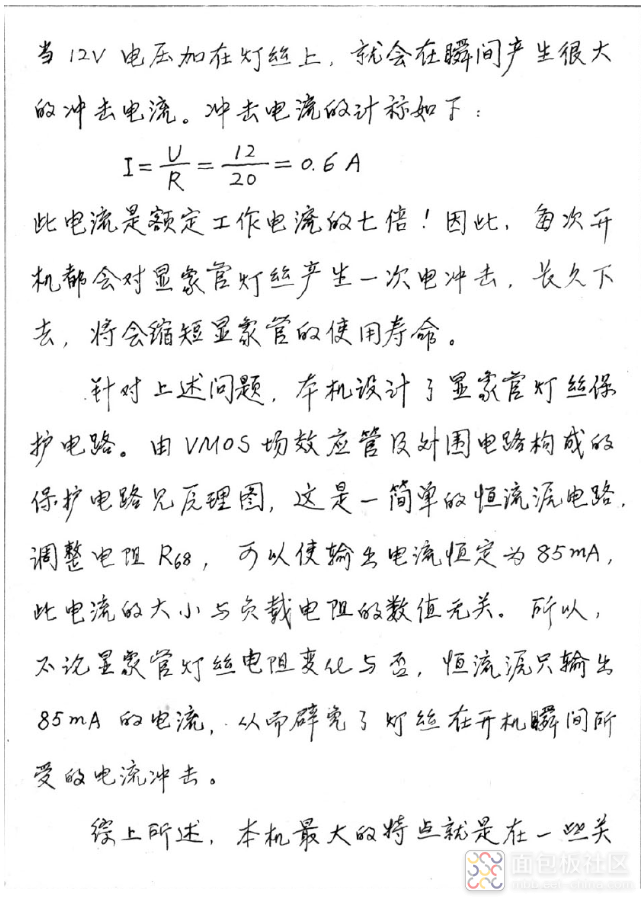 当12V电压加在灯丝上，就会在瞬间产生很大
的冲击电流。冲击电流的计称如下：
I=U/R=12/20=0.6A
此电流是额定工作电流的七倍！因此，每次开
机都会对显象管灯丝产生一次电冲击，长久下
去，将会缩短显象管的使用寿命。
针对上述问题，本机设计了显象管灯丝保
护电路。由VMOS场效应管及外围电路构成的
保护电路见原理图，这是一简单的恒流源电路，
调整电阻R68，可以使输出电流恒定为85mA，
此电流的大小与负载电阻的数值无关。所以，
不论显象管灯丝电阻变化与否，恒流源只输出
85mA的电流，从而辟免了灯丝在开机瞬间所
受的电流冲击。
综上所述，本机最大的特点就是在一些关
面包板社区
mbb.eet-china.com